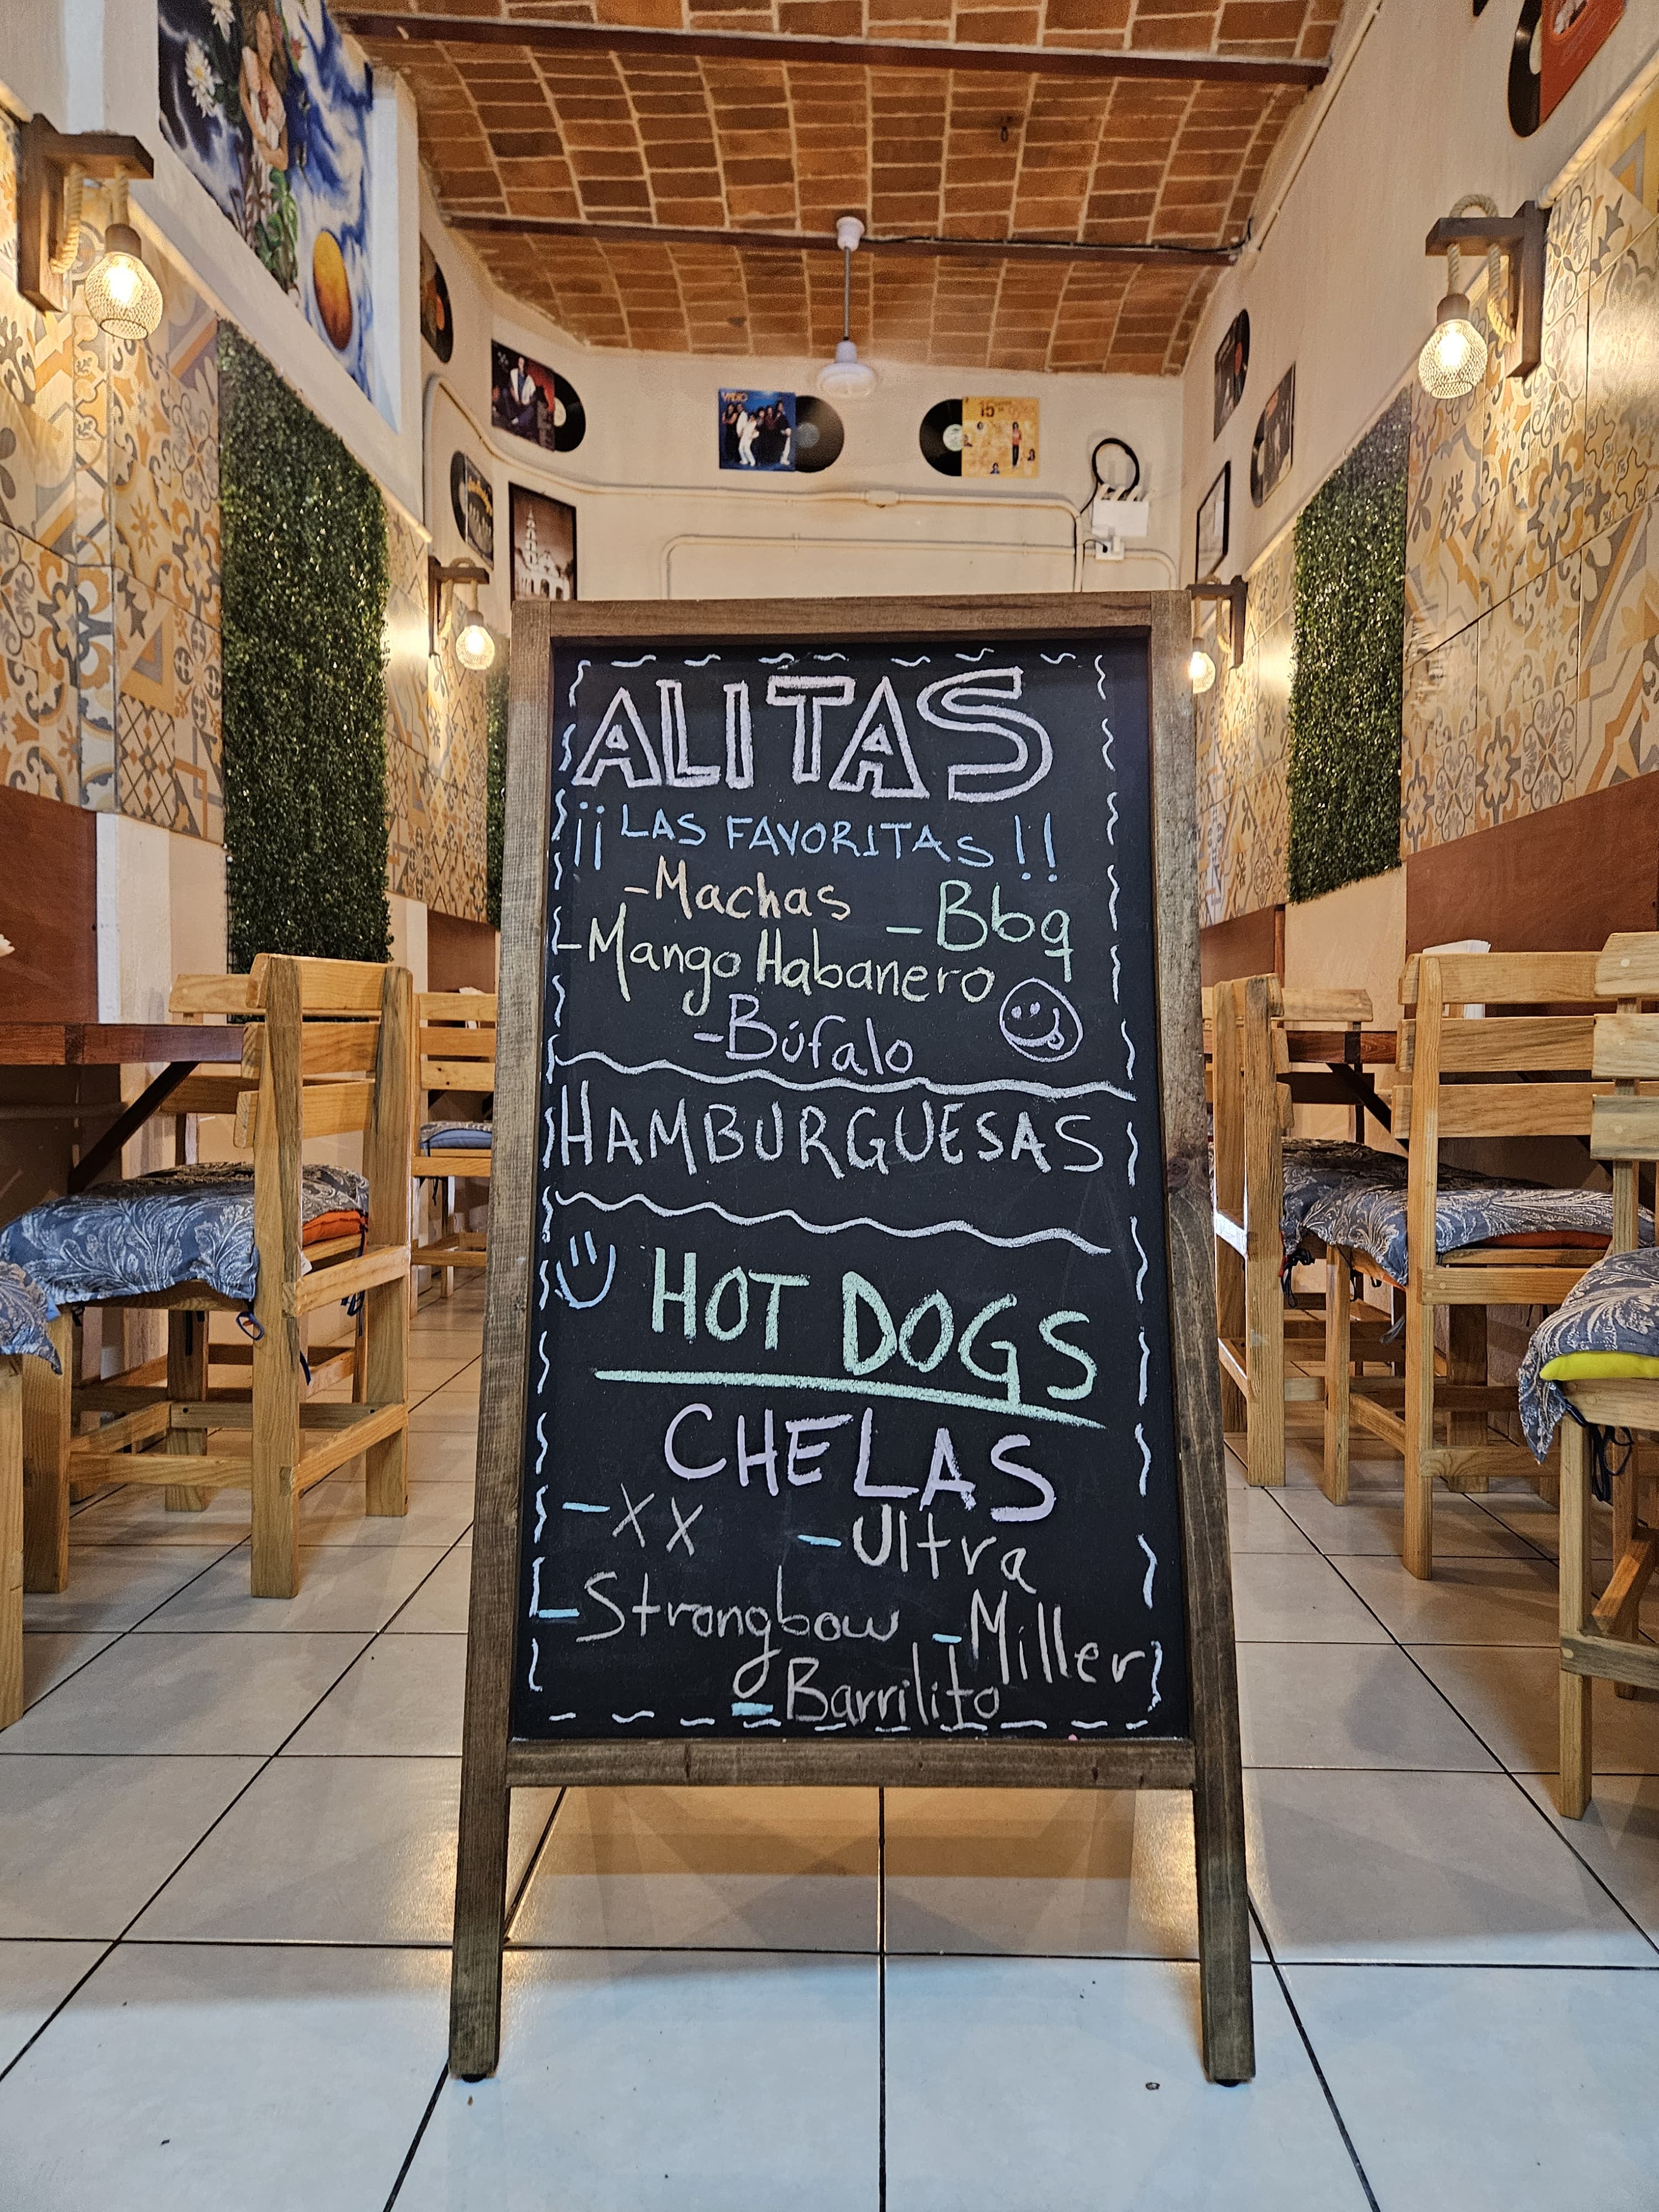 ALITAS
¡¡LAS FAVORITAS!!
-Machas -Bbq
-Mango Habanero
-Búfalo
HAMBURGUESAS
HOT DOGS
CHELAS
-XX -Ultra
-Strongbow -Miller
-Barrilito